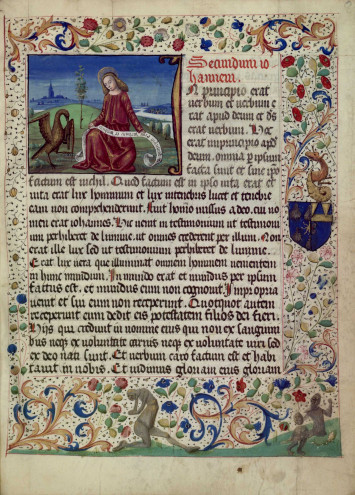 Secundum io
hannem.
N principio erat
verbum et verbum e
rat apud deum et ds
erat verbum. Hoc
erat inprincipio apd
deum. omnia per ipsum
facta sunt et sine ipo
factum est nichil. Quod factum est in ipso vita erat et
vita erat lux hominum et lux intenebris lucet et tenebre
eam non comprehenderunt. Fuit homo missus a deo. cui no
men erat iohannes. Hic venit in testimonium ut testimoni
um perhiberet de lumine. ut omnes crederent per illum. Non
erat ille lux sed ut testimonium perhiberet de lumine.
Erat lux vera que illuminat omnem hominem venientem
in hunc mundum. In mundo erat et mundus per ipsum
factus est. et mundus eum non cognovit. In propria
venit et sui eum non receperunt. Quotquot autem
receperunt eum dedit eis potestatem filios dei fieri.
Hijs qui credunt in nomine eius qui non ex sanguini
bus neqz ex voluntate carnis neqz ex voluntate viri sed
ex deo nati sunt. Et verbum caro factum est et habi
tavit in nobis. Et vidimus gloriam eius gloriam